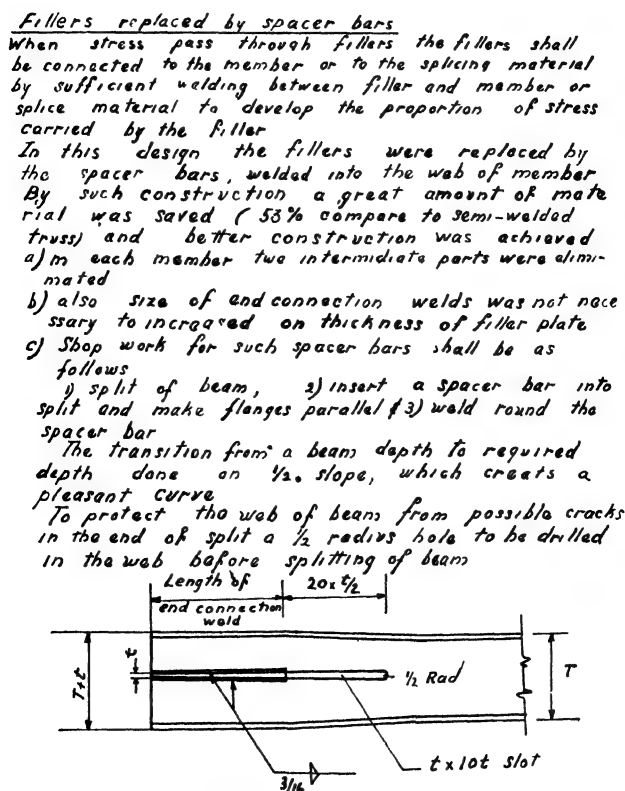 Fillers replaced by spacer bars
When stress pass through fillers the fillers shall
be connected to the member or to the splicing material
by sufficient welding between filler and member or
splice material to develop the proportion of stress
carried by the filler
In this design the fillers were replaced by
the spacer bars, welded into the web of member
By such construction a great amount of mate
rial was saved (53% compare to semi-welded
truss) and better construction was achieved
a) m each member two intermidiate parts were elimi-
mated
b) also size of end connection welds was not nece
ssary to increased on thickness of filler plate
c) Shop work for such spacer bars shall be as
follows
1) split of beam, 2) insert a spacer bar into
split and make flanges parallel & 3) weld round the
spacer bar
The transition from a beam depth to required
depth done on 1/20 slope, which creats a
pleasant curve
To protect the web of beam from possible cracks
in the end of split a 1/2 radius hole to be drilled
in the web before splitting of beam
Length of
end connection
weld
20 x t/2
T+t
t
1/2 Rad
T
t x 10t slot
3/16